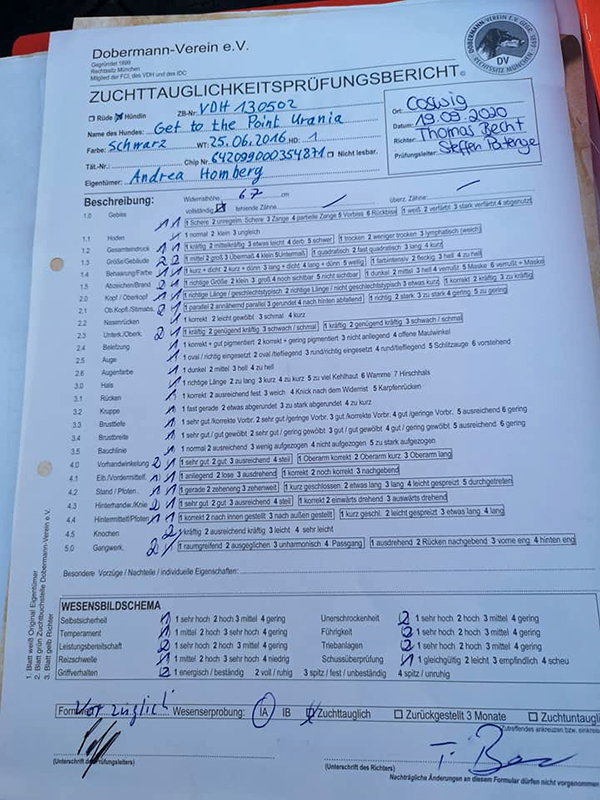 Dobermann-Verein e.V.
Gegründet 1899
Rechtssitz München
Mitglied der FCI, des VDH und des IDC
DOBERMANN-VEREIN E.V. GEGR. 1899
DV
RECHTSSITZ MÜNCHEN
ZUCHTTAUGLICHKEITSPRÜFUNGSBERICHT©
☐ Rüde ☒ Hündin ZB-Nr. VDH 130502
Name des Hundes: Get to the Point Urania
Farbe: schwarz WT: 25.06.2016 HD: 1
Tät.-Nr.: Chip Nr. 642099000354871 ☐ Nicht lesbar.
Eigentümer: Andrea Homberg
Ort: Coswig
Datum: 19.09.2020
Richter: Thomas Becht
Prüfungsleiter: Steffen
Beschreibung: Widerristhöhe 67 cm
1.0 Gebiss vollständig ☒ fehlende Zähne / überz. Zähne: /
1 1 1 Schere 2 unregelm. Schere 3 Zange 4 partielle Zange 5 Vorbiss 6 Rückbiss 1 weiß 2 verfärbt 3 stark verfärbt 4 abgenutzt
1.1 Hoden 1 normal 2 klein 3 ungleich
1.2 Gesamteindruck 1 1 1 kräftig 2 mittelkräftig 3 etwas leicht 4 derb 5 schwer 1 trocken 2 weniger trocken 3 lymphatisch (weich)
1.3 Größe/Gebäude 2 2 1 mittel 2 groß 3 Übermaß 4 klein 5 Untermaß 1 quadratisch 2 fast quadratisch 3 lang 4 kurz
1.4 Behaarung/Farbe 1 1 1 kurz + dicht 2 kurz + dünn 3 lang + dicht 4 lang + dünn 5 wellig 1 farbintensiv 2 fleckig 3 hell 4 zu hell
1.5 Abzeichen/Brand 2 1 1 richtige Größe 2 klein 3 groß 4 noch sichtbar 5 nicht sichtbar 1 dunkel 2 mittel 3 hell 4 verrußt 5 Maske 6 verrußt + Maske
2.0 Kopf / Oberkopf 1 1 1 richtige Länge / geschlechtstypisch 2 richtige Länge / nicht geschlechtstypisch 3 etwas kurz 1 korrekt 2 kräftig 3 zu kräftig
2.1 Ob.Kopfl./Stirnabs. 2 1 1 parallel 2 annähernd parallel 3 gerundet 4 nach hinten abfallend 1 richtig 2 stark 3 zu stark 4 gering 5 zu gering
2.2 Nasenrücken 1 1 korrekt 2 leicht gewölbt 3 schmal 4 kurz
2.3 Unterk./Oberk. 2 1 1 kräftig 2 genügend kräftig 3 schwach / schmal 1 kräftig 2 genügend kräftig 3 schwach / schmal
2.4 Belefzung 1 1 korrekt + gut pigmentiert 2 korrekt + gering pigmentiert 3 nicht anliegend 4 offene Maulwinkel
2.5 Auge 1 1 oval / richtig eingesetzt 2 oval /tiefliegend 3 rund/richtig eingesetzt 4 rund/tiefliegend 5 Schlitzauge 6 vorstehend
2.6 Augenfarbe 1 1 dunkel 2 mittel 3 hell 4 zu hell
3.0 Hals 1 1 richtige Länge 2 zu lang 3 kurz 4 zu kurz 5 zu viel Kehlhaut 6 Wamme 7 Hirschhals
3.1 Rücken 1 1 korrekt 2 ausreichend fest 3 weich 4 Knick nach dem Widerrist 5 Karpfenrücken
3.2 Kruppe 1 1 fast gerade 2 etwas abgerundet 3 zu stark abgerundet 4 zu kurz
3.3 Brusttiefe 1 1 sehr gut /korrekte Vorbr. 2 sehr gut / geringe Vorbr. 3 gut /korrekte Vorbr. 4 gut /geringe Vorbr. 5 ausreichend 6 gering
3.4 Brustbreite 1 1 sehr gut / gut gewölbt 2 sehr gut / gering gewölbt 3 gut / gut gewölbt 4 gut / gering gewölbt 5 ausreichend 6 gering
3.5 Bauchlinie 1 1 normal 2 ausreichend 3 wenig aufgezogen 4 nicht aufgezogen 5 zu stark aufgezogen
4.0 Vorhandwinkelung 2 1 1 sehr gut 2 gut 3 ausreichend 4 steil 1 Oberarm korrekt 2 Oberarm kurz 3 Oberarm lang
4.1 Elb./Vordermittel. 1 1 1 anliegend 2 lose 3 ausdrehend 1 korrekt 2 noch korrekt 3 nachgebend
4.2 Stand / Pfoten 1 1 1 gerade 2 zeheneng 3 zehenweit 1 kurz geschlossen 2 etwas lang 3 lang 4 leicht gespreizt 5 durchgetreten
4.3 Hinterhandw./Knie 2 1 1 sehr gut 2 gut 3 ausreichend 4 steil 1 korrekt 2 einwärts drehend 3 auswärts drehend
4.4 Hintermittelf/Pfoten 1 1 1 korrekt 2 nach innen gestellt 3 nach außen gestellt 1 kurz geschl. 2 leicht gespreizt 3 etwas lang 4 lang
4.5 Knochen 2 1 kräftig 2 ausreichend kräftig 3 leicht 4 sehr leicht
5.0 Gangwerk. 2 1 1 raumgreifend 2 ausgeglichen 3 unharmonisch 4 Passgang 1 ausdrehend 2 Rücken nachgebend 3 vorne eng 4 hinten eng
Besondere Vorzüge / Nachteile / individuelle Eigenschaften:
1. Blatt weiß Original Eigentümer
2. Blatt grün Zuchtbuchstelle Dobermann-Verein e.V.
3. Blatt gelb Richter
WESENSBILDSCHEMA
Selbstsicherheit 1 1 sehr hoch 2 hoch 3 mittel 4 gering Unerschrockenheit 2 1 sehr hoch 2 hoch 3 mittel 4 gering
Temperament 1 1 mittel 2 hoch 3 sehr hoch 4 gering Führigkeit 2 1 sehr hoch 2 hoch 3 mittel 4 gering
Leistungsbereitschaft 2 1 sehr hoch 2 hoch 3 mittel 4 gering Triebanlagen 2 1 sehr hoch 2 hoch 3 mittel 4 gering
Reizschwelle 1 1 mittel 2 hoch 3 sehr hoch 4 niedrig Schussüberprüfung 1 1 gleichgültig 2 leicht 3 empfindlich 4 scheu
Griffverhalten 2 1 energisch / beständig 2 voll / ruhig 3 spitz / fest / unbeständig 4 spitz / unruhig
Vorzüglich Wesenserprobung: IA IB ☒ Zuchttauglich ☐ Zurückgestellt 3 Monate ☐ Zuchtuntaugli
Zutreffendes ankreuzen bzw.
(Unterschrift des Prüfungsleiters)
(Unterschrift des Richters)
Nachträgliche Änderungen an diesem Formular dürfen nicht vorgenommen